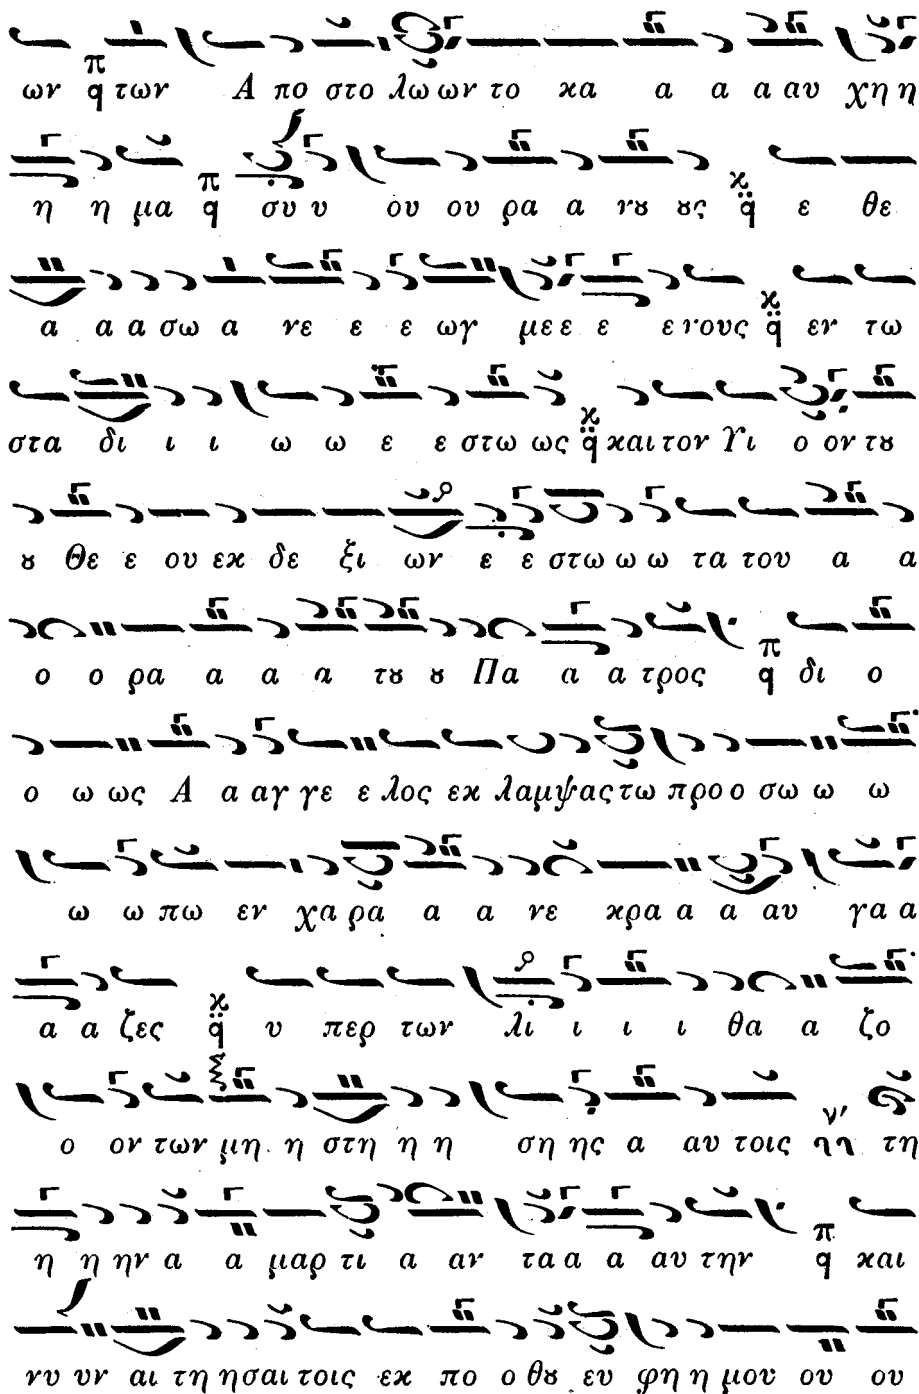 ων π ϥ των Α πο στο λω ων το κα α α α αυ χη η
η η μα π ϥ συ υ ου ου ρα α νȣ ȣς ϰ ϥ̈ ε θε
α α α σω α νε ε ε ωγ με ε ε ε νους ϰ ϥ̈ εν τω
στα δι ι ι ω ω ε ε στω ως ϰ ϥ̈ και τον Υι ο ον τȣ
ȣ Θε ε ου εκ δε ξι ων ε ε στω ω ω τα του α α
ο ο ρα α α α τȣ ȣ Πα α α τρος π ϥ δι ο
ο ω ως Α α αγ γε ε λος εκ λαμ ψας τω προ ο σω ω ω
ω ω πω εν χα ρα α α νε κρα α α αυ γα α
α α ζες ϰ ϥ̈ υ περ των λι ι ι ι θα α ζο
ο ον των μη η στη η η ση ης α αυ τοις ν' τη
η η ην α α μαρ τι α αν τα α α αυ την π ϥ και
νυ υν αι τη η σαι τοις εκ πο ο θȣ ευ φη η μου ου ου